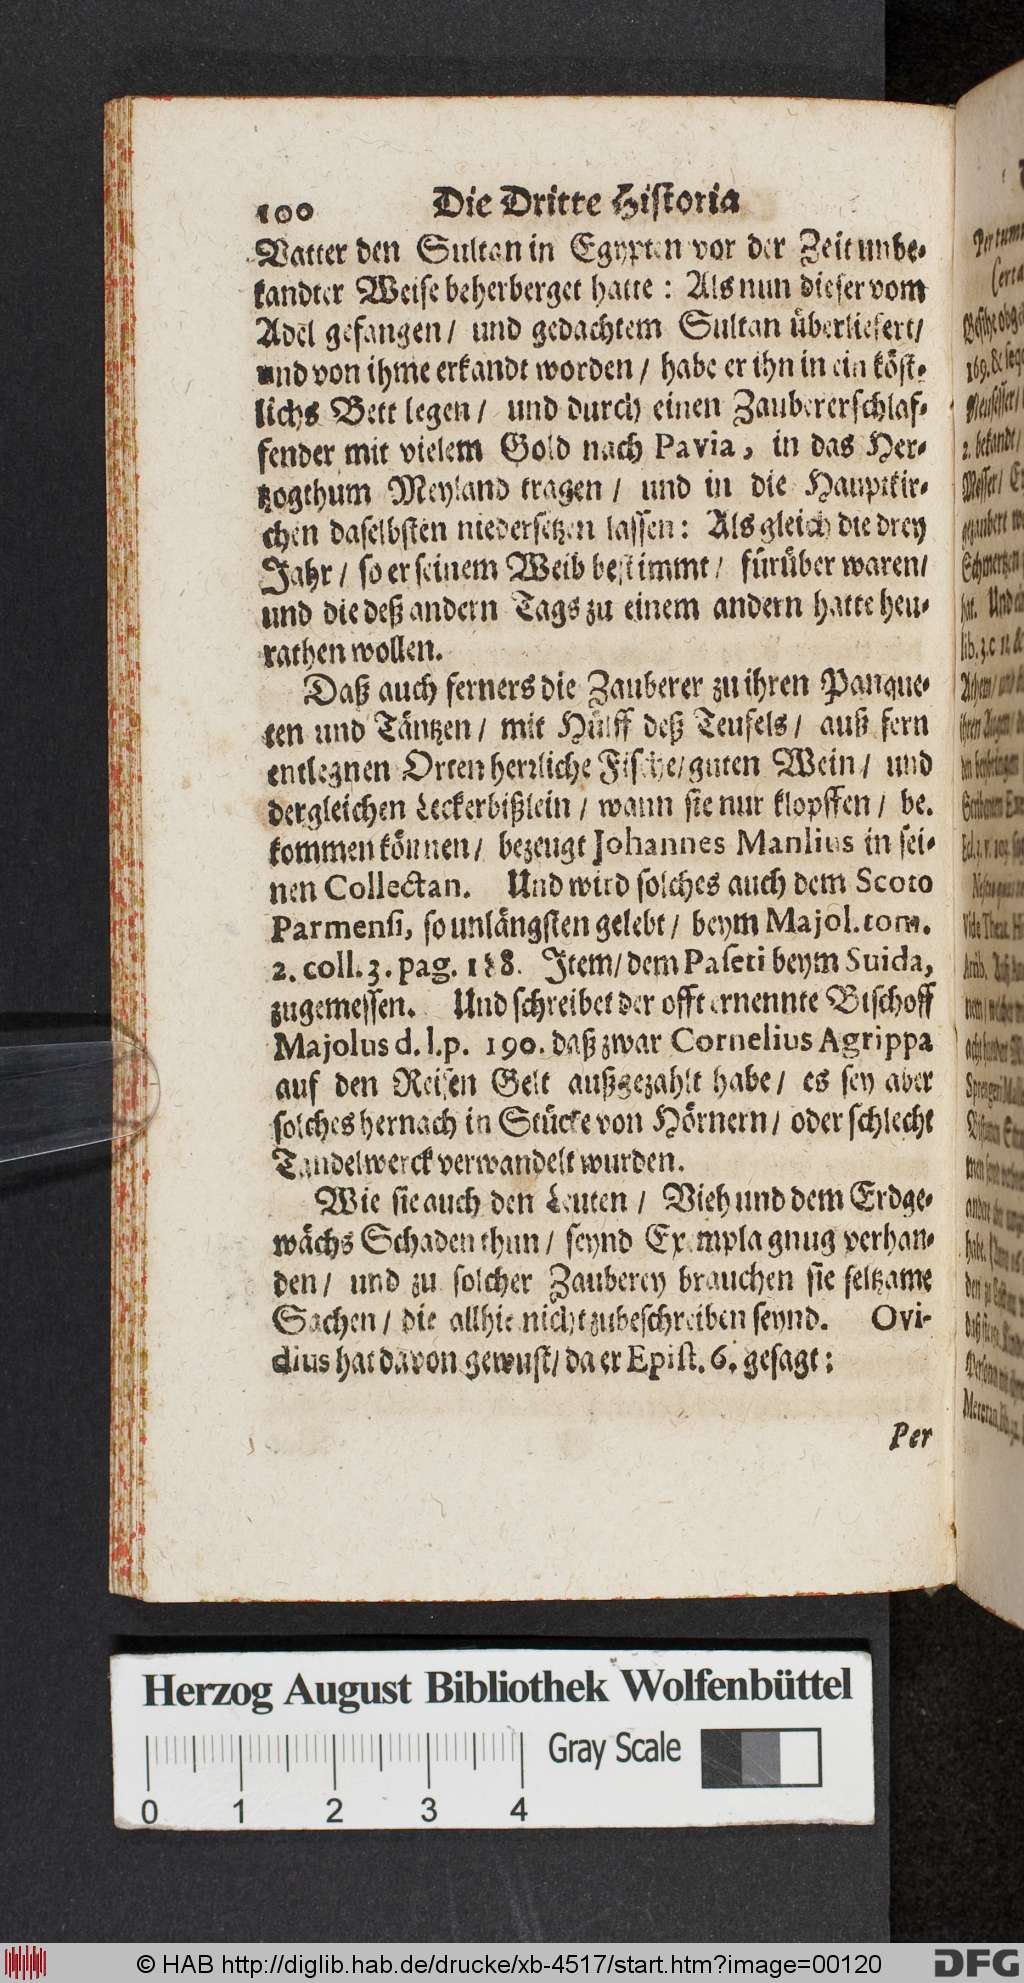 100 Die Dritte Historia
Vatter den Sultan in Egypten vor der Zeit unbe-
kandter Weise beherberget hatte : Als nun dieser vom
Adel gefangen / und gedachtem Sultan überliefert /
und von ihme erkandt worden / habe er ihn in ein köst-
lichs Bett legen / und durch einen Zauberer schlaf-
fender mit vielem Gold nach Pavia, in das Her-
tzogthum Meyland tragen / und in die Hauptkir-
chen daselbsten niedersetzen lassen : Als gleich die drey
Jahr / so er seinem Weib bestimmt / fürüber waren /
und die deß andern Tags zu einem andern hatte heu-
rathen wollen.
Daß auch ferners die Zauberer zu ihren Panque-
ten und Täntzen / mit Hülff deß Teufels / auß fern
entlegnen Orten herrliche Fische / guten Wein / und
dergleichen Leckerbißlein / wann sie nur klopffen / be-
kommen können / bezeugt Johannes Manlius in sei-
nen Collectan. Und wird solches auch dem Scoto
Parmensi, so unlängsten gelebt / beym Majol. tom.
2. coll. 3. pag. 188. Item / dem Paseti beym Suida,
zugemessen. Und schreibet der offt ernennte Bischoff
Majolus d. l. p. 190. daß zwar Cornelius Agrippa
auf den Reisen Gelt außgezahlt habe / es sey aber
solches hernach in Stücke von Hörnern / oder schlecht
Tandelwerck verwandelt wurden.
Wie sie auch den Leuten / Vieh und dem Erdge-
wächs Schaden thun / seynd Exempla gnug verhan-
den / und zu solcher Zauberey brauchen sie seltzame
Sachen / die allhie nicht zubeschreiben seynd. Ovi-
dius hat davon gewust / da er Epist. 6. gesagt :
Per
Herzog August Bibliothek Wolfenbüttel
Gray Scale
0 1 2 3 4
© HAB http://diglib.hab.de/drucke/xb-4517/start.htm?image=00120
DFG